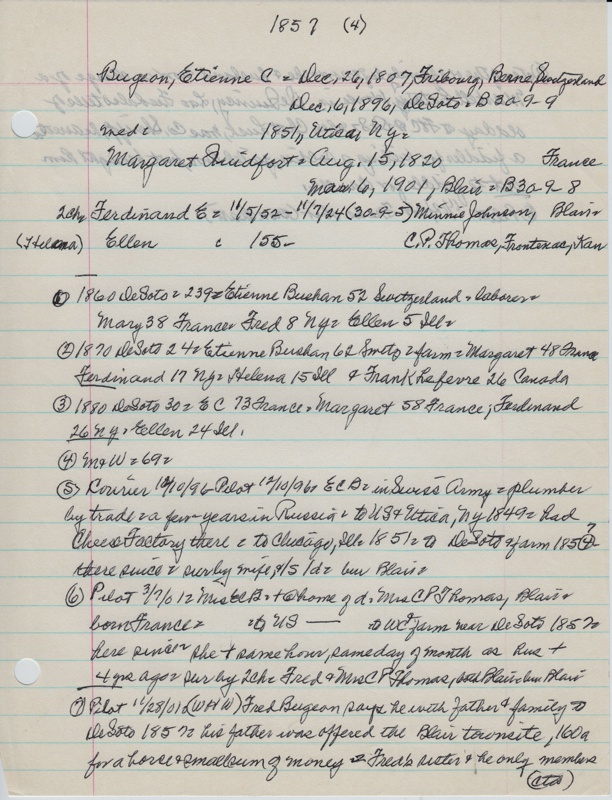 1857 (4)
Bugeon, Etienne C = Dec, 26, 1807, Fribourg, Berne, Switzerland
Dec, 6, 1896, DeSoto = B30-9-9
med = 1851, Utica, Ny =
Margaret = Aug. 15, 1820 France
Mar 6, 1901, Blair = B30-9-8
2ch, Ferdinand E = 11/5/52 - 11/7/24 (30-9-5) Minnie Johnson, Blair =
(Helena) Ellen 155- C.P. Thomas, Frontenac, Kan
① 1860 DeSoto = 239 = Etienne Bushan 52 Switzerland = laborer =
Mary 38 France = Fred 8 Ny = Ellen 5 Ill =
② 1870 DeSoto 24 = Etienne Bushan 62 = farm = Margaret 48 France
Ferdinand 17 Ny = Helena 15 Ill & Frank Lefevre 26 Canada
③ 1880 DeSoto 30 = E C 73 France = Margaret 58 France; Ferdinand
26 Ny = Ellen 24 Ill.
④ M & W = 69 =
⑤ Courier 12/10/96 Pilot 12/10/96 = E C B = in Swiss Army = plumber
by trade = a few years in Russia = to US & Utica, Ny 1849 = had
Cheese Factory there = to Chicago, Ill = 1851 = to DeSoto & farm 185(?)
there since = sur by wife, 1s 1d = bur Blair =
⑥ Pilot 3/7/01 = Mrs E C B = + @ home of d = Mrs C P Thomas, Blair =
born France = to US — to WC & farm near DeSoto 1857 =
here since = she + same hour, same day of month as hus +
4 yrs ago = sur by 2ch = Fred & Mrs C P Thomas, both Blair = bur Blair
⑦ Pilot 11/28/01 (WHW) Fred Bugeon says he with father & family to
DeSoto 1857 = his father was offered the Blair townsite, 160a
for a horse & small sum of money = Fred's sister & he only members
(ctd)